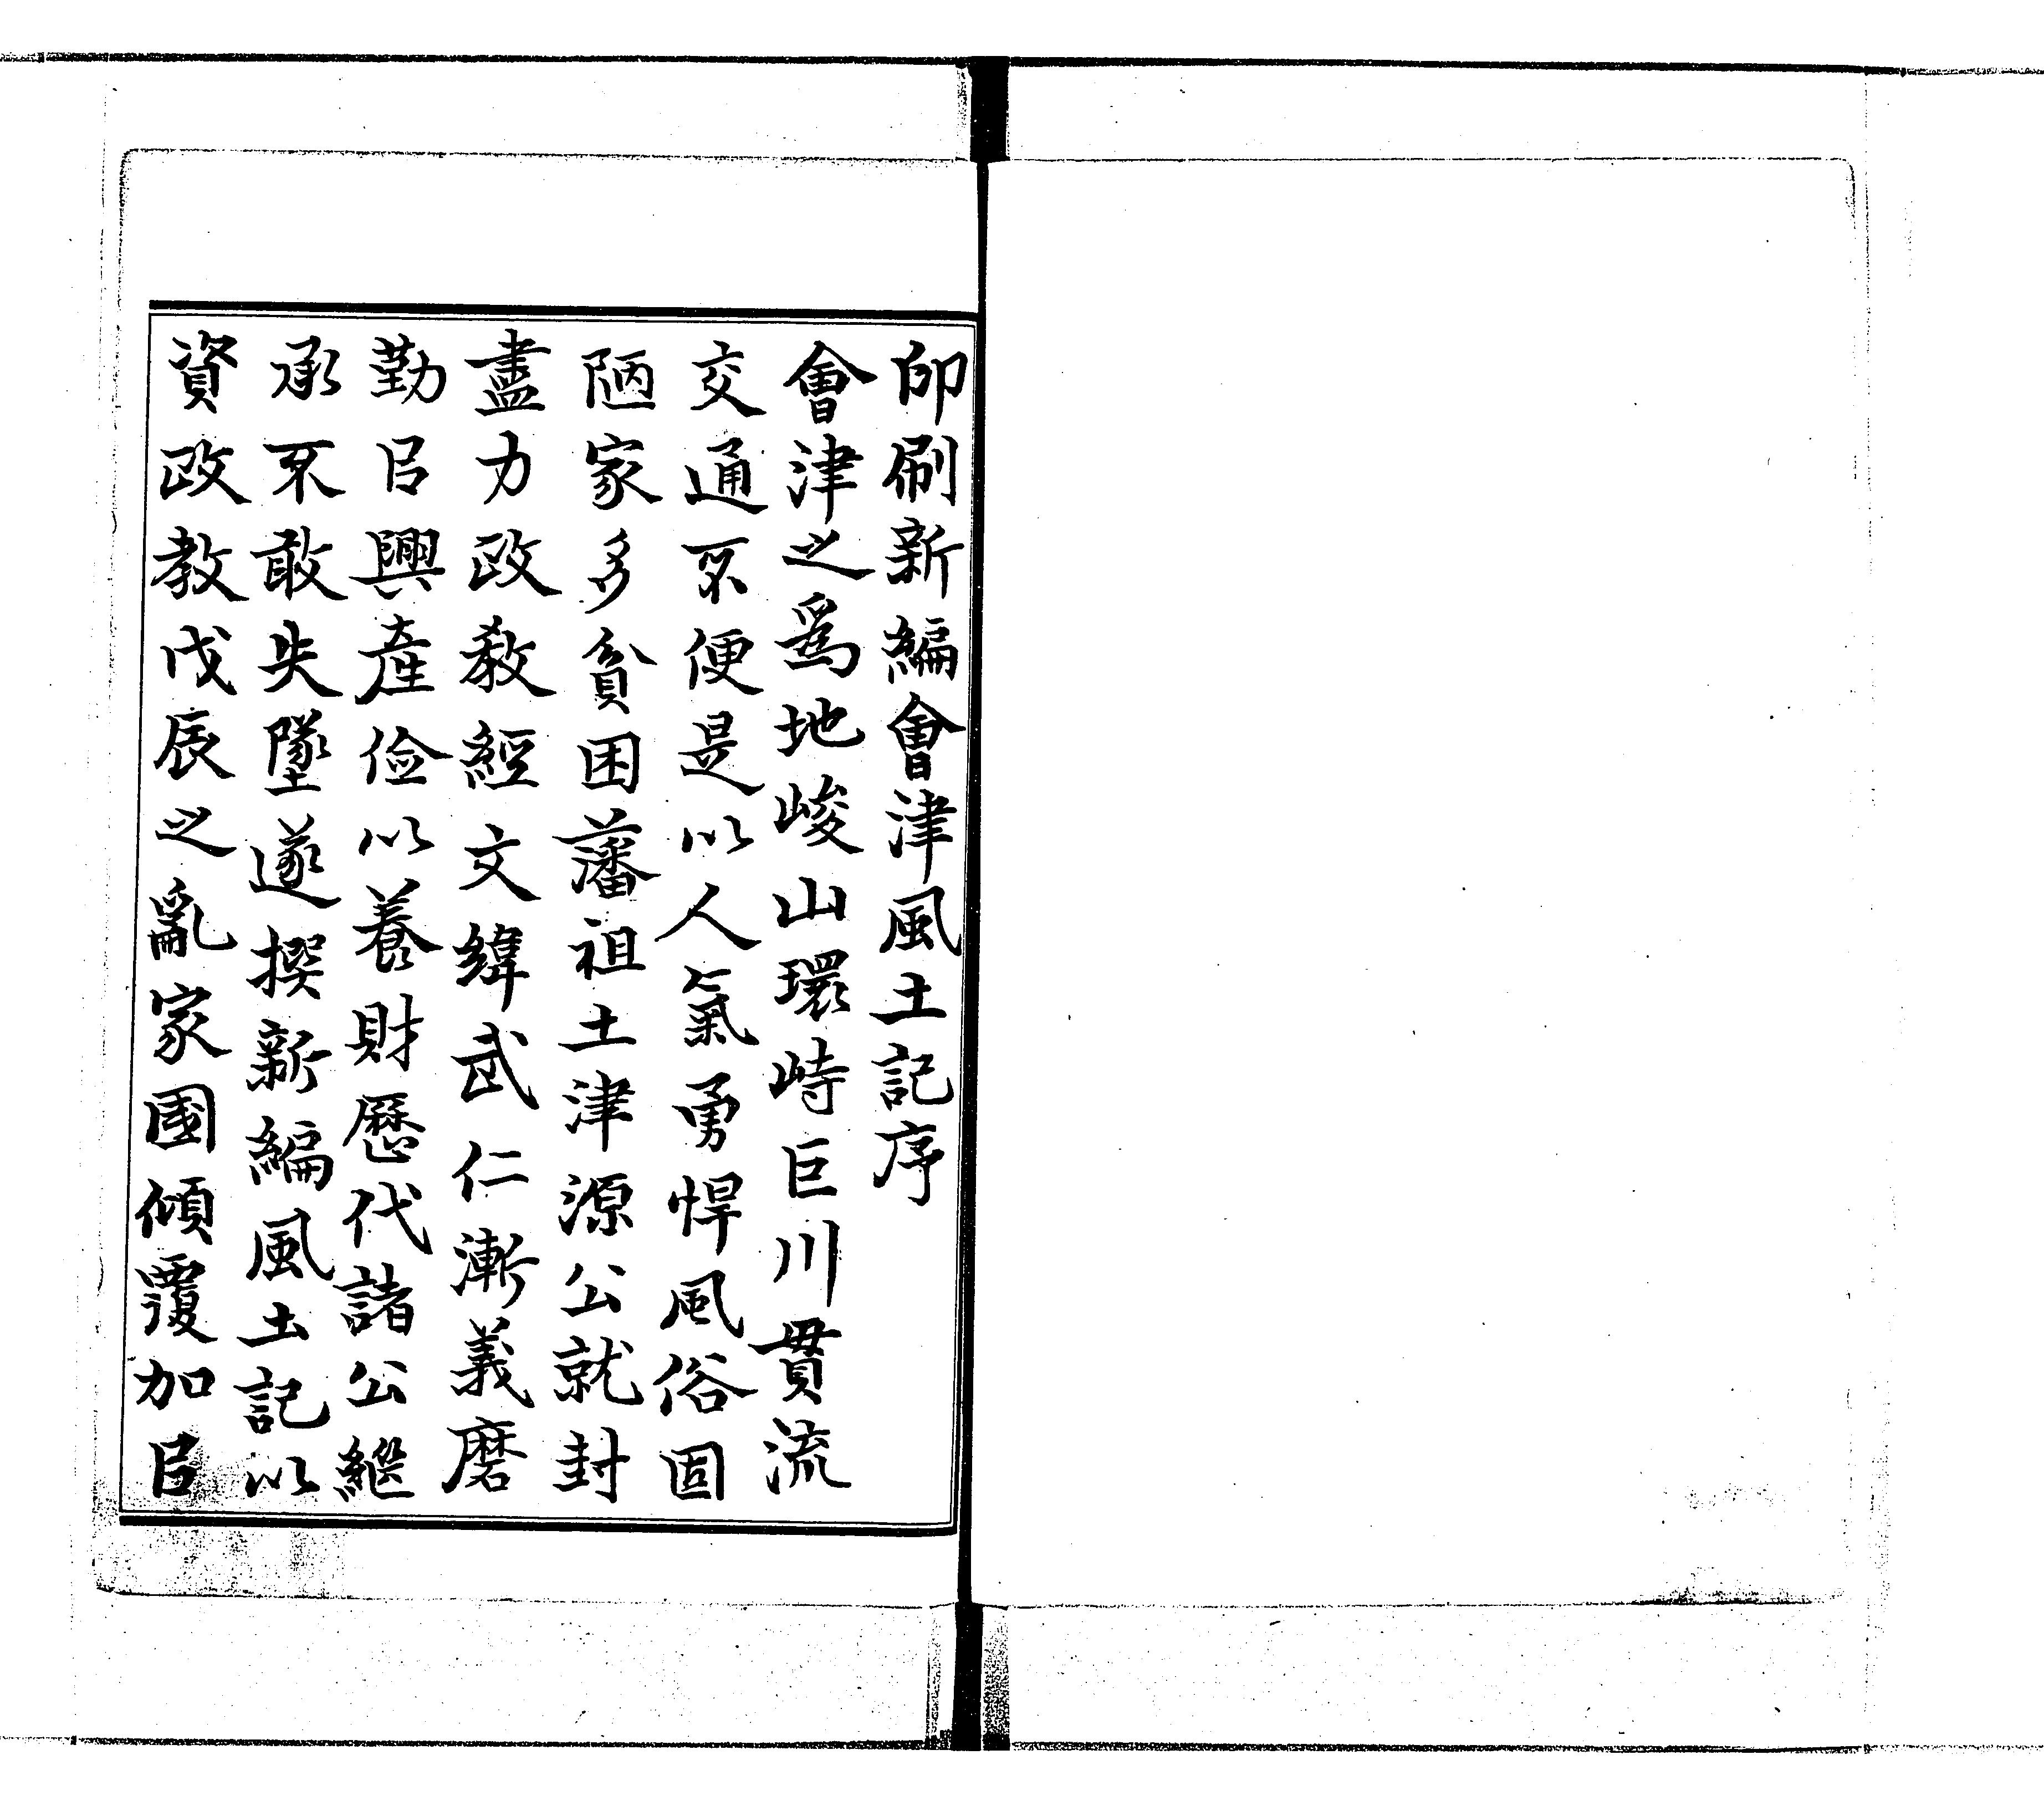 印刷新編會津風土記序
會津之爲地峻山環峙巨川貫流
交通不便是以人氣勇悍風俗固
陋家多貧困藩祖土津源公就封
盡力政教經文緯武仁漸義磨
勤㠯興產儉以養財歷代諸公繼
承不敢失墜遂撰新編風土記以
資政教戊辰之亂家國傾覆加㠯